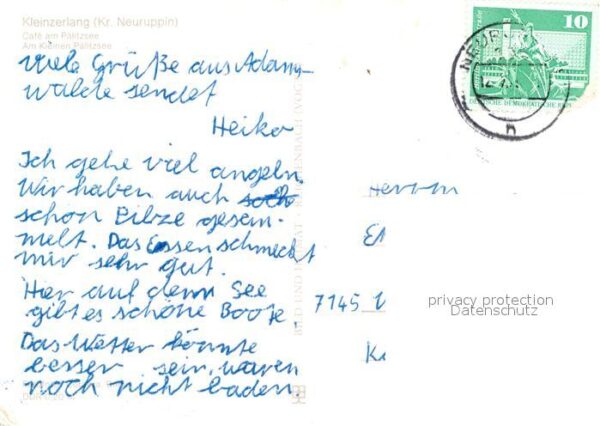 Kleinzerlang (Kr. Neuruppin)
Café am Pälitzsee
Am Kleinen Pälitzsee
10
DEUTSCHE DEMOKRATISCHE REP
Viele Grüße aus Adams-
walde sendet
Heiko
Ich gehe viel angeln.
Wir haben auch
schon Pilze gesam-
melt. Das Essen schmeckt
mir sehr gut.
Hier auf dem See
gibt es schöne Boote.
Das Wetter könnte
besser sein, waren
noch nicht baden.
BILD UND HEIMAT
Herrn
7145
privacy protection
Datenschutz